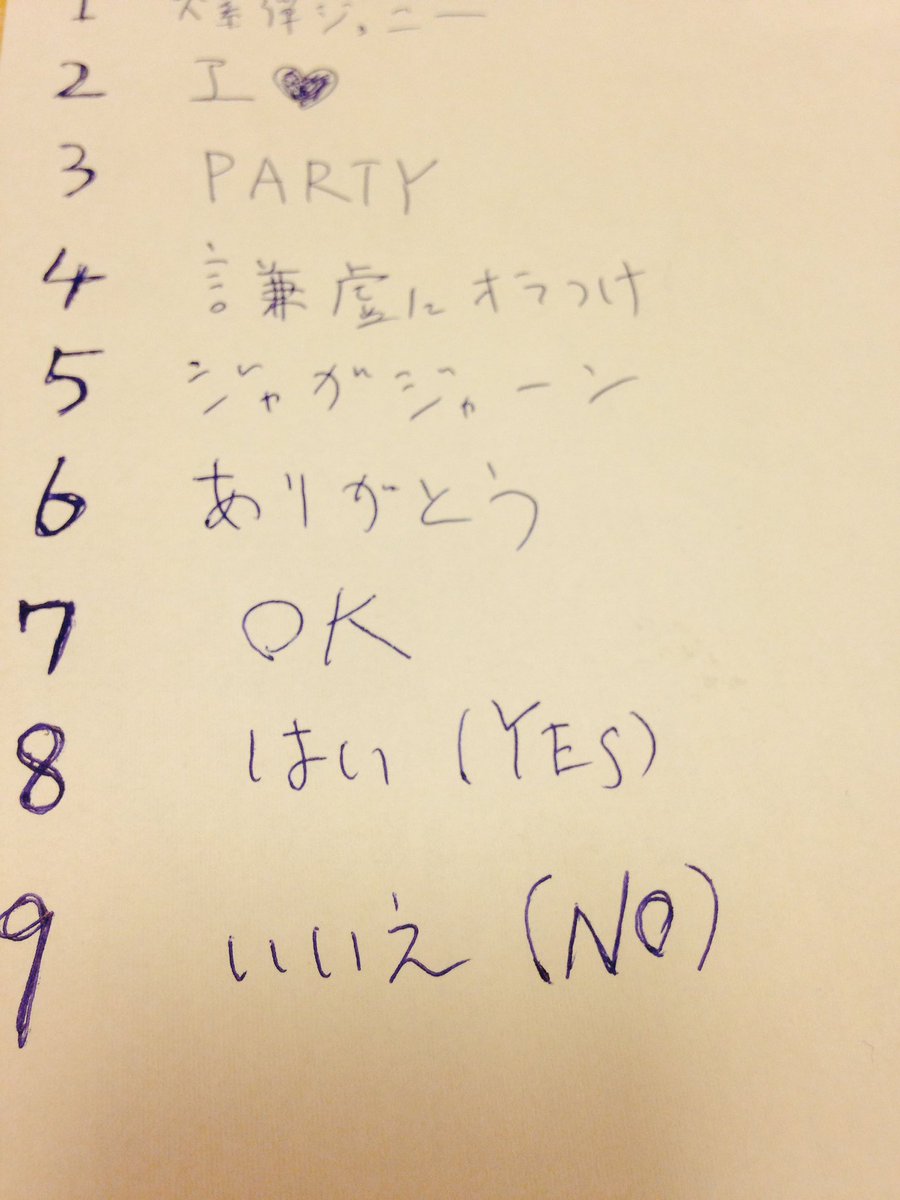 1 ジョニー
2 I ♥
3 PARTY
4 謙虚にオラつけ
5 ジャガジャーン
6 ありがとう
7 OK
8 はい (YES)
9 いいえ (NO)